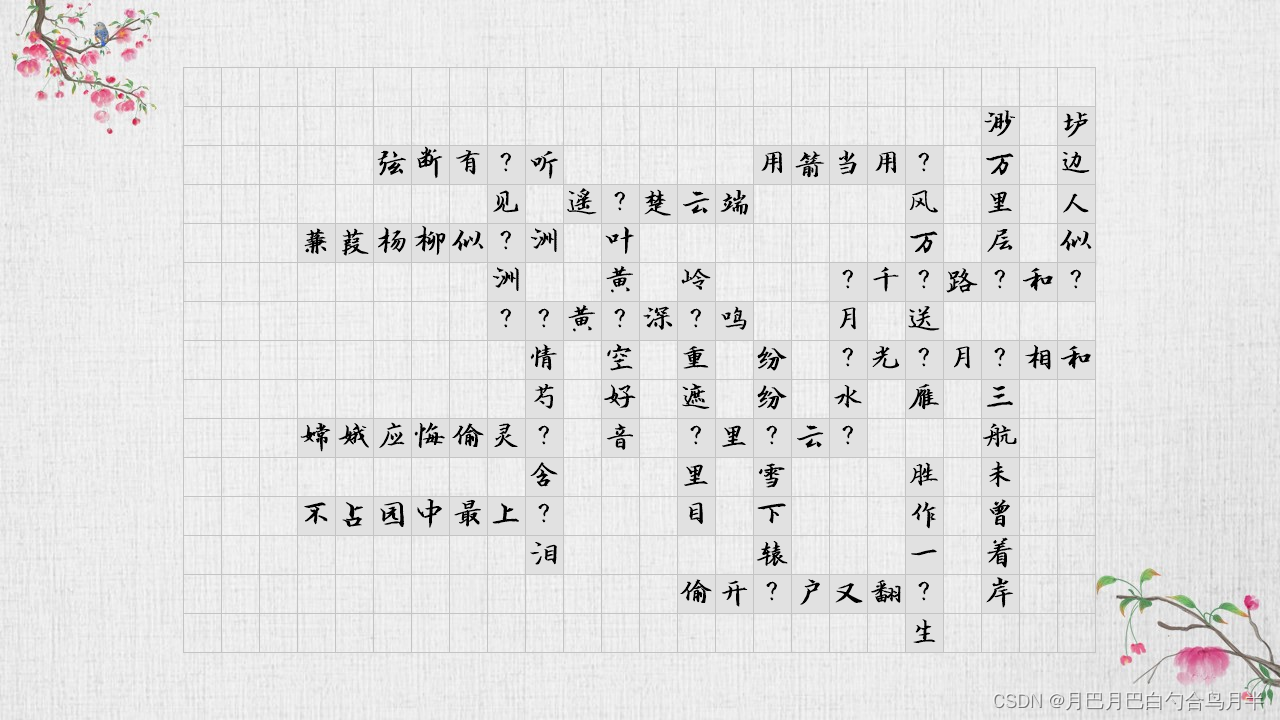 渺 垆
弦断有?听 用箭当用? 万 边
见 遥?楚云端 风 里 人
蒹葭杨柳似?洲 叶 万 层 似
洲 黄 岭 ?千?路?和?
??黄?深?鸣 月 送
情 空 重 纷 ?光?月?相和
芍 好 遮 纷 水 雁 三
嫦娥应悔偷灵? 音 ?里?云? 航
含 里 雪 胜 未
不占园中最上? 目 下 作 曾
泪 辕 一 着
偷开?户又翻? 岸
生
CSDN @月巴月巴白勺合鸟月半